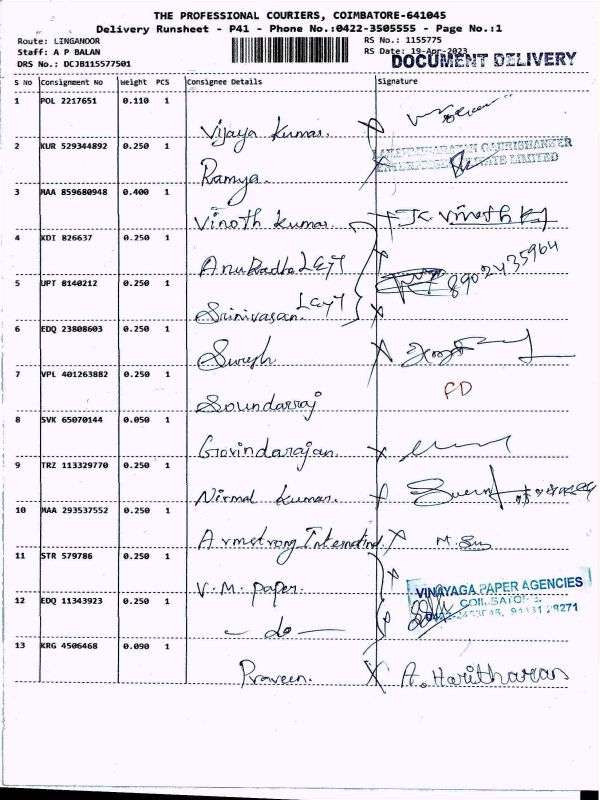 THE PROFESSIONAL COURIERS, COIMBATORE-641045
Delivery Runsheet - P41 - Phone No.:0422-3505555 - Page No.:1
Route: LINGANOOR
RS No.: 1155775
Staff: A P BALAN
RS Date: 19-Apr-2023
DRS No.: DCJB115577501
DOCUMENT DELIVERY
S No Consignment No Weight PCS Consignee Details Signature
1 POL 2217651 0.110 1
Vijaya Kumar.
2 KUR 529344892 0.250 1
LAKSHMINARAYAN GAURISHANKER
ENTERPRISES PRIVATE LIMITED
Ramya.
3 MAA 859680948 0.400 1
Vinoth Kumar. K. Vinoth K
4 KDI 826637 0.250 1
AnuRadha L&T
5 UPT 8140212 0.250 1
8902435964
Srinivasan. L&T
6 EDQ 23808603 0.250 1
Suresh
7 VPL 401263882 0.250 1
FD
Soundarraj
8 SVK 65070144 0.050 1
Govindarajan.
9 TRZ 113329770 0.250 1
Nirmal Kumar.
10 MAA 293537552 0.250 1
Armstrong
11 STR 579786 0.250 1
V.M. Paper.
VINAYAGA PAPER AGENCIES
COIMBATORE
12 EDQ 11343923 0.250 1
- do -
13 KRG 4506468 0.090 1
Praveen. A. Haritharan